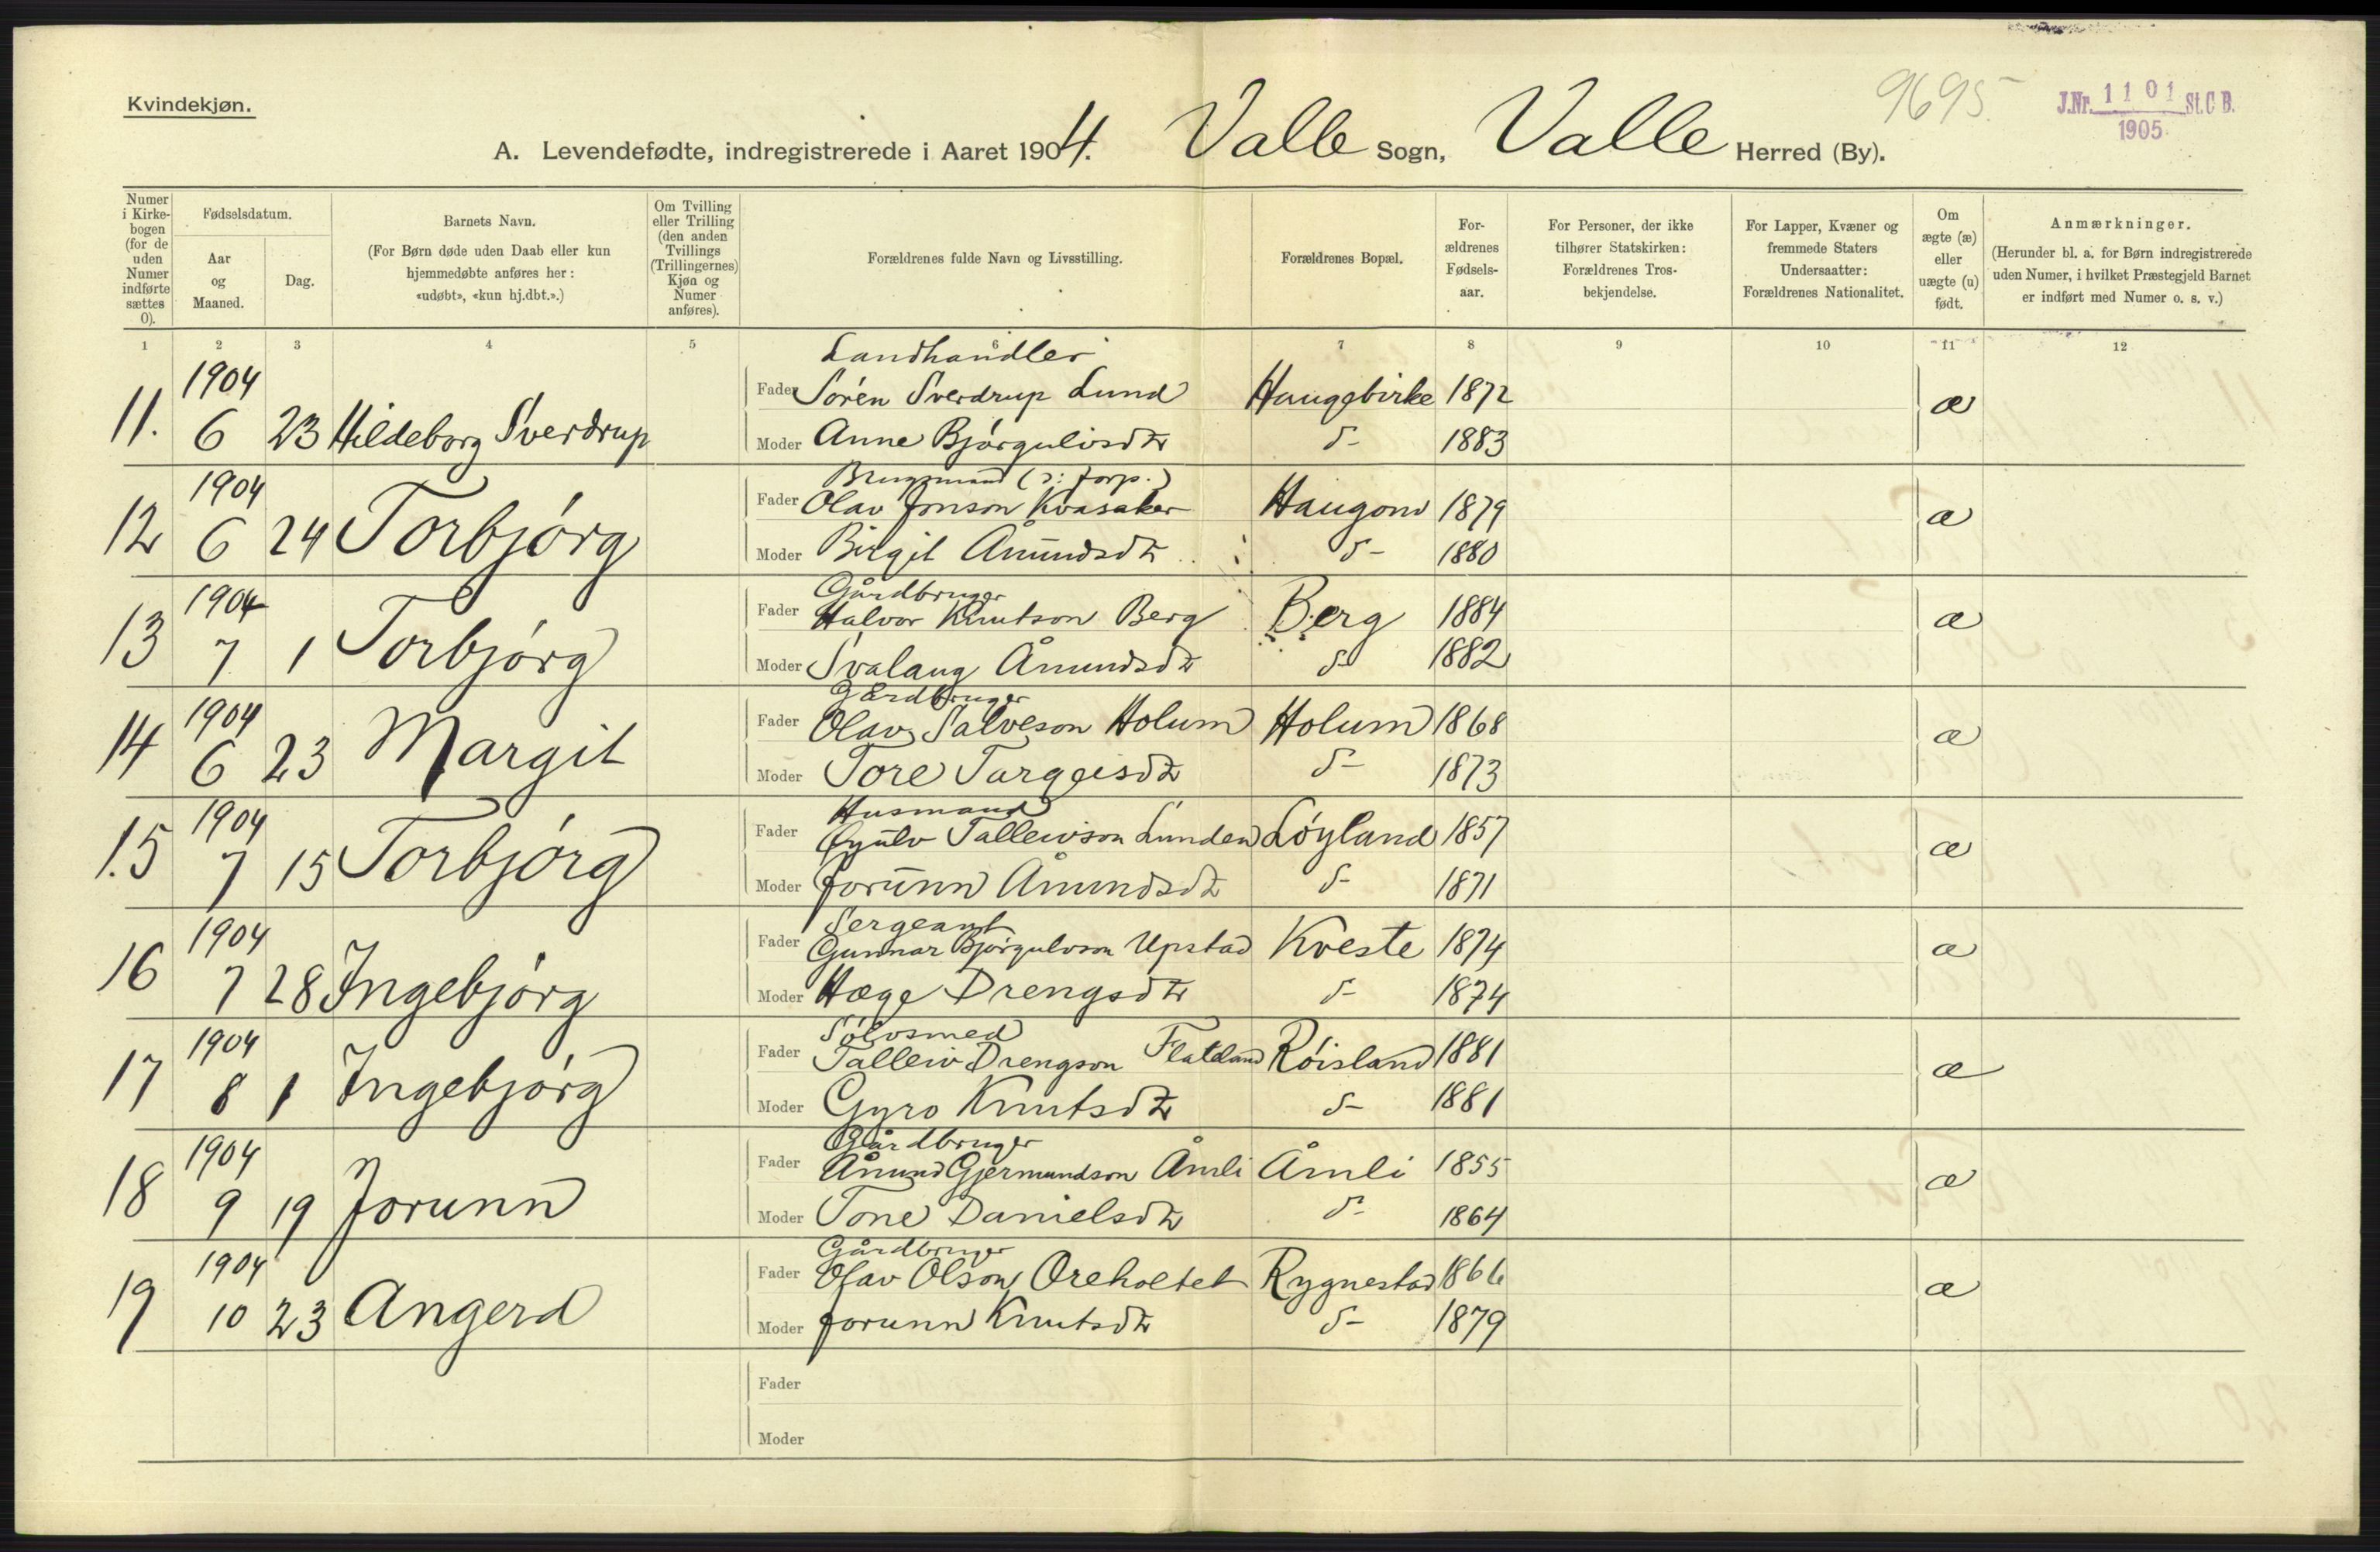 Kvindekjøn.
9695
J.Nr. 1101 St. C. B.
1905
A. Levendefødte, indregistrerede i Aaret 1904. Valle Sogn, Valle Herred (By).
Numer i Kirkebogen (for de uden Numer indførte sættes 0).
Fødselsdatum.
Aar og Maaned.
Dag.
Barnets Navn.
(For Børn døde uden Daab eller kun hjemmedøbte anføres her: «udøbt», «kun hj.dbt.».)
Om Tvilling eller Trilling (den anden Tvillings (Trillingernes) Kjøn og Numer anføres).
Forældrenes fulde Navn og Livsstilling.
Forældrenes Bopæl.
Forældrenes Fødselsaar.
For Personer, der ikke tilhører Statskirken: Forældrenes Trosbekjendelse.
For Lapper, Kvæner og fremmede Staters Undersaatter: Forældrenes Nationalitet.
Om ægte (æ) eller uægte (u) født.
Anmærkninger.
(Herunder bl. a. for Børn indregistrerede uden Numer, i hvilket Præstegjeld Barnet er indført med Numer o. s. v.)
1 2 3 4 5 6 7 8 9 10 11 12
1904 Landhandler
Fader Sóren Sverdrup Lund Haugebirke 1872 æ
11. 6 23 Hildeborg Sverdrup Moder Anne Bjórgulvsdtr d- 1883
1904 Brugsmand (ɔ: forp.)
Fader Olav Jonson Kvasaker Haugom 1879 æ
12 6 24 Torbjórg Moder Birgit Åmundsdtr d- 1880
1904 Gårdbruger
Fader Halvor Knutson Berg Berg 1884 æ
13 7 1 Torbjórg Moder Svalaug Åmundsdtr d- 1882
1904 Gårdbruger
Fader Olav Salveson Holum Holum 1868 æ
14 6 23 Margit Moder Tore Targeisdtr d- 1873
1904 Husmand
Fader Eyulv Talleivson Lunden Lóyland 1857 æ
15 7 15 Torbjórg Moder Jorunn Åmundsdtr d- 1871
1904 Sergeant
Fader Gunnar Bjórgulvson Upstad Kveste 1874 æ
16 7 28 Ingebjórg Moder Hæge Drengsdtr d- 1874
1904 Sólvsmed
Fader Talleiv Drengson Flateland Róisland 1881 æ
17 8 1 Ingebjórg Moder Gyro Knutsdtr d- 1881
1904 Gårdbruger
Fader Ånund Gjermundson Åmli Åmli 1855 æ
18 9 19 Jorunn Moder Tone Danielsdtr d- 1864
1904 Gårdbruger
Fader Olav Olson Oreholtet Rygnestad 1866 æ
19 10 23 Angerd Moder Jorunn Knutsdtr d- 1879
Fader
Moder